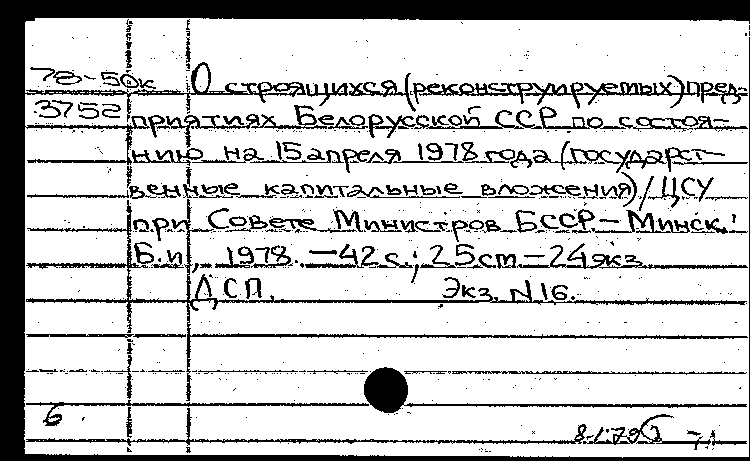 78-50к О строящихся (реконструируемых) пред-
3752 приятиях Белорусской ССР по состоя-
нию на 15 апреля 1978 года (государст-
венные капитальные вложения) / ЦСУ
при Совете Министров БССР. – Минск.:
Б.и., 1978. – 42 с.; 25 см – 24 экз
ДСП. Экз. N 16.
6.